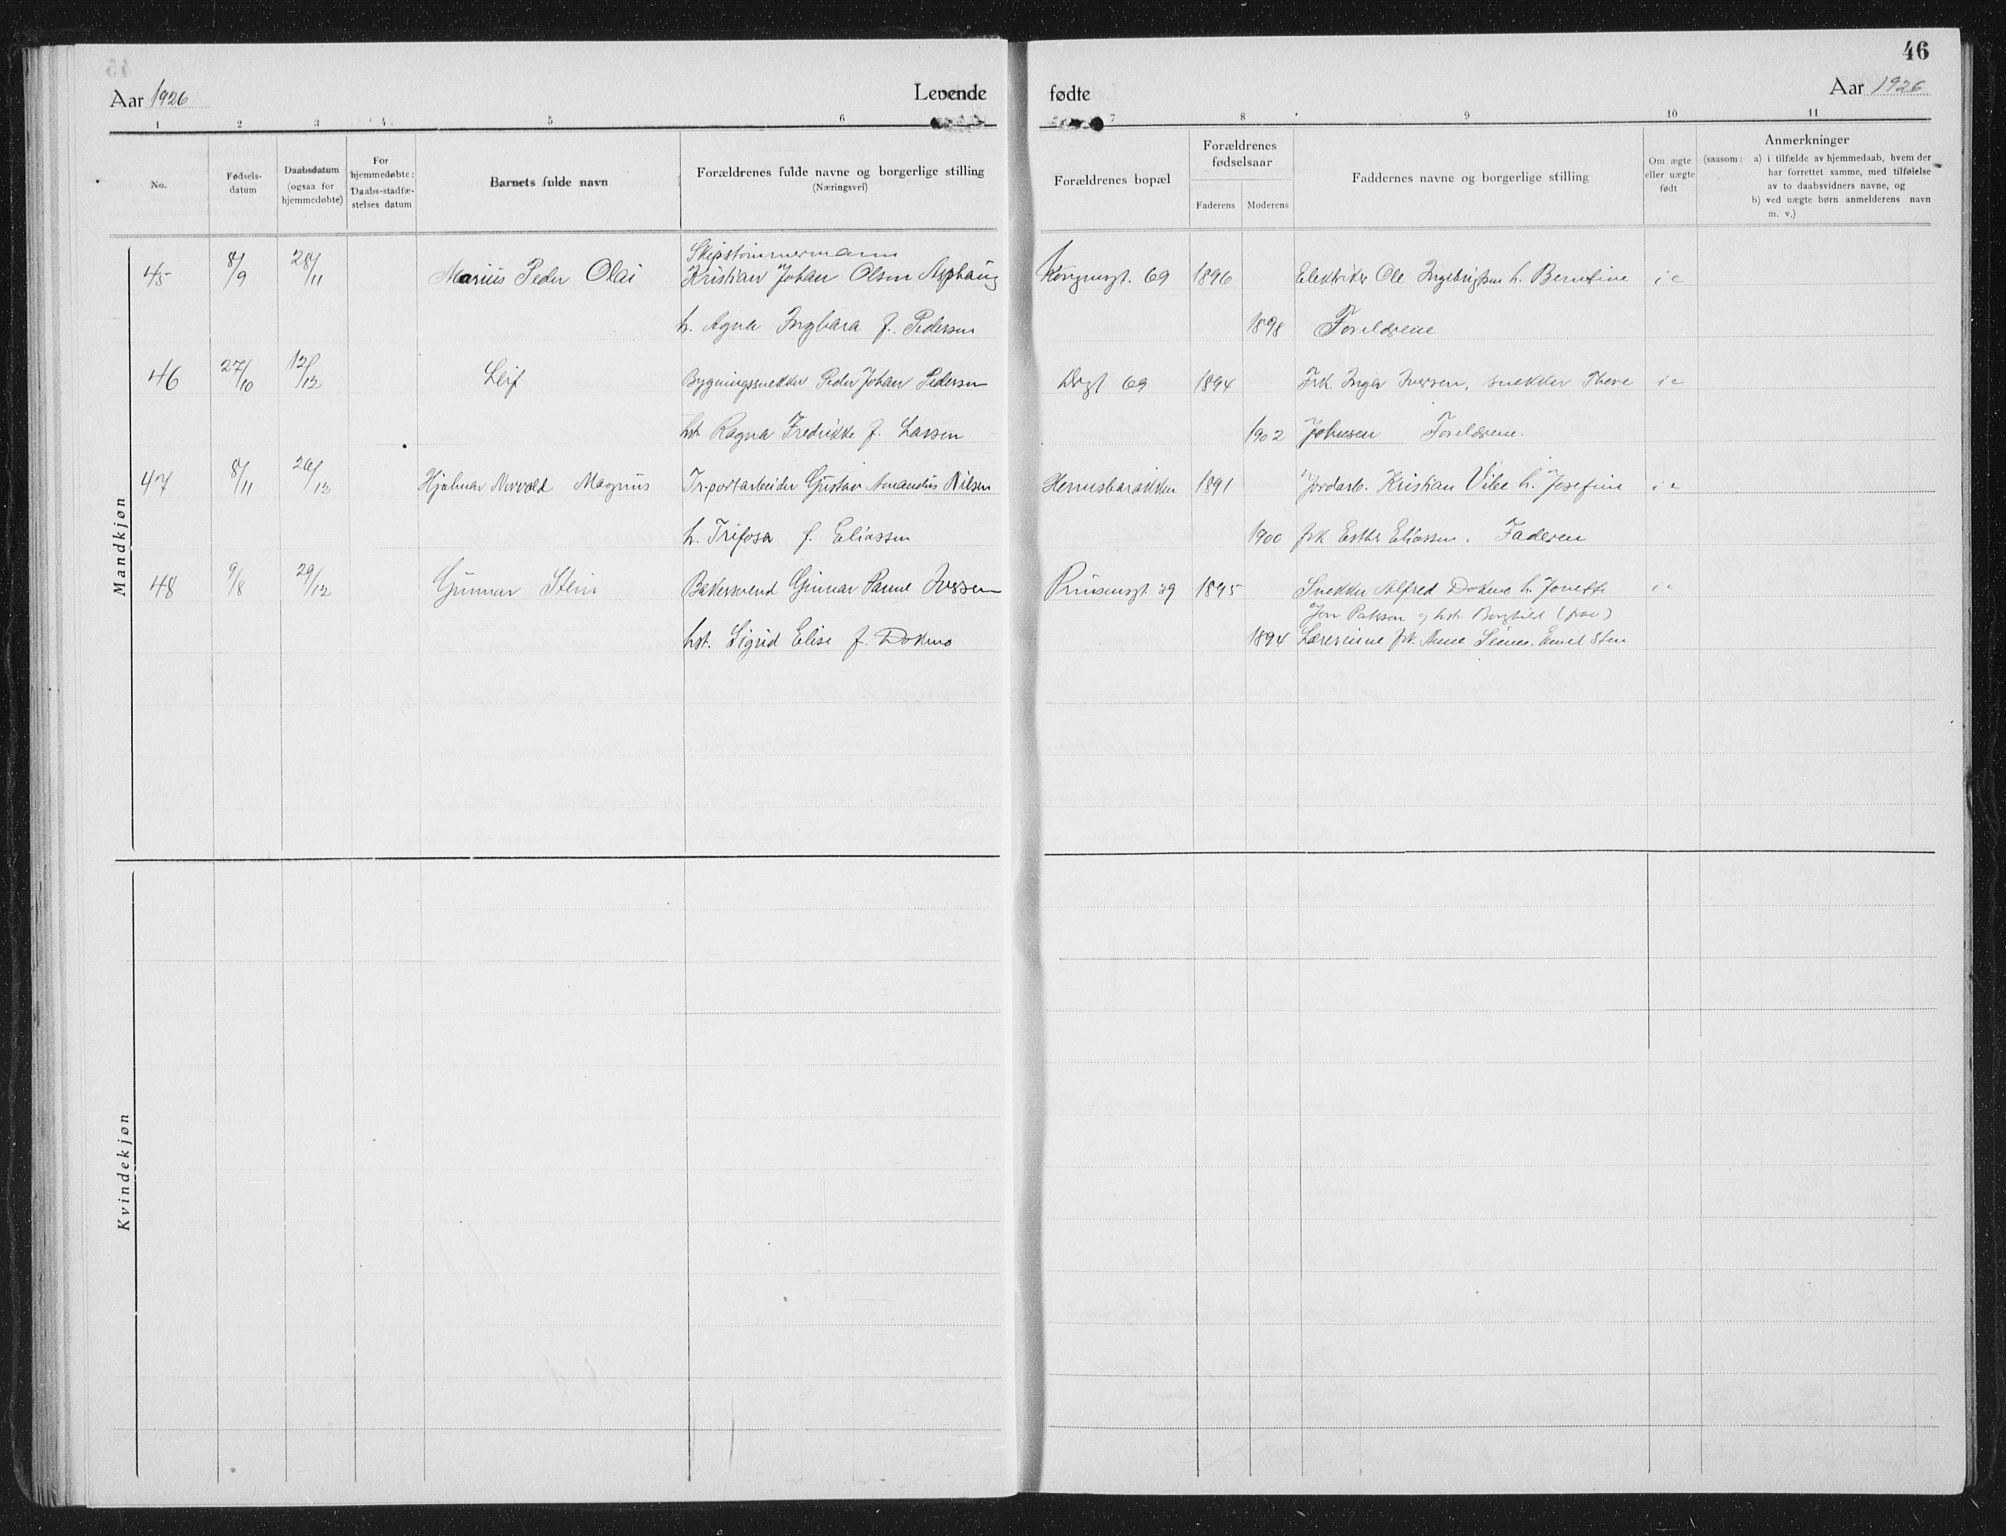 46
Aar 1926 Levende fødte Aar 1926
1 2 3 4 5 6 7 8 9 10 11
No.
Fødsels-
datum
Daabsdatum
(ogsaa for
hjemmedøbte)
For
hjemmedøbte:
Daabs-stadfæ-
stelses datum
Barnets fulde navn
Forældrenes fulde navne og borgerlige stilling
(Næringsvei)
Forældrenes bopæl
Forældrenes
fødselsaar
Faderens Moderens
Faddernes navne og borgerlige stilling
Om ægte
eller uægte
født
Anmerkninger
(saasom: a) i tilfælde av hjemmedaab, hvem der
har forrettet samme, med tilføielse
av to daabsvidners navne, og
b) ved uægte børn anmelderens navn
m. v.)
Mandkjøn
Skipstømmermann
45 8/9 28/11 Marius Peder Olai Kristian Johan Olsen Kongensgt. 69 1896 Elektriker Ole Ingebrigtsen h. Berntine
h. Agna Ingbara f. Pedersen 1898 Foreldrene
46 27/10 12/12 Leif Bygningssnekker Peder Johan Pedersen Do gt 69 1894 Frk Inger Iversen, snekker
hst. Ragna Fredrikke f. Larsen 1902 Johnsen Foreldrene.
47 8/11 26/12 Hjalmar Norvald Magnus Tr.portarbeider Gustav Amandus Nilsen 1891 Jordarb. Kristian Vibe h. Josefine
h. Trifosa f. Eliassen 1900 frk Esther Eliassen. Faderen
48 9/8 29/12 Gunnar Stein Bakersvend Gunnar Iversen Prinsensgt 39 1895 Snekker Alfred Dokmo h. Jonette
hst. Borghild
hst. Sigrid Elise f. Dokmo 1894 Lærerinne frk. Anne Emil Sten
Kvindekjøn